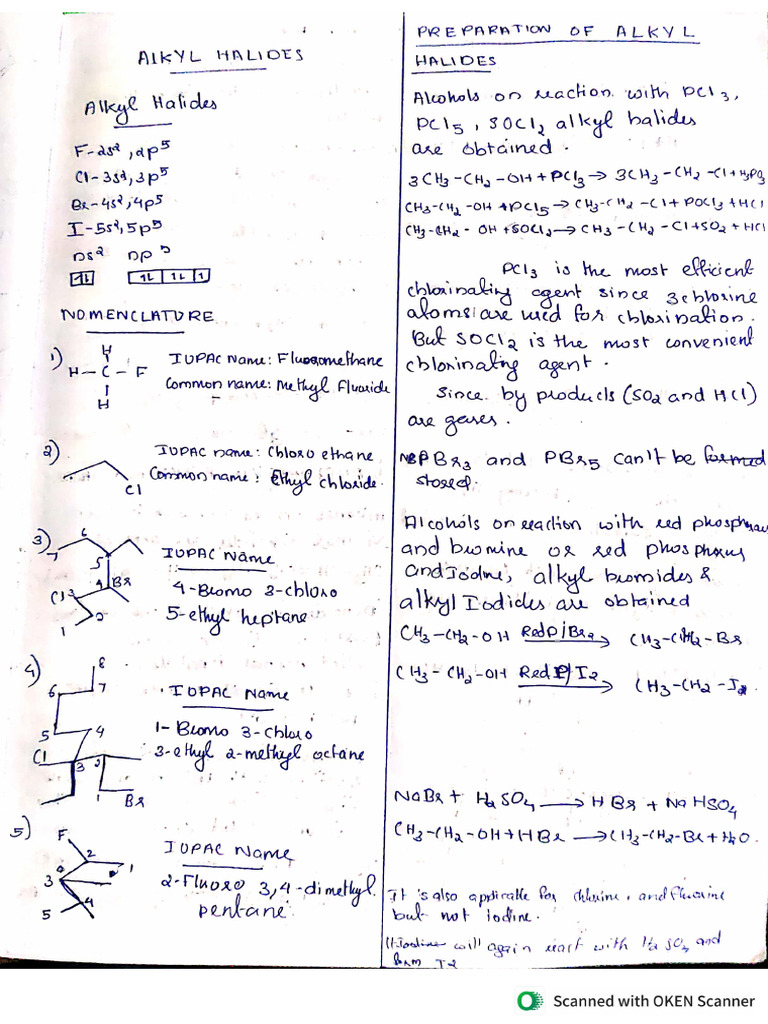 ALKYL HALIDES
Alkyl Halides
F-2s², 2p⁵
Cl-3s², 3p⁵
Br-4s², 4p⁵
I-5s², 5p⁵
ns² np⁵
1L 1L 1L 1
NOMENCLATURE
1)
H
H-C-F
H
IUPAC Name: Fluoromethane
Common name: Methyl Fluoride
2)
IUPAC name: Chloro ethane
Common name: Ethyl chloride.
Cl
3)
6
7
5
4 Br
Cl 3
2
1
IUPAC Name
4-Bromo 3-chloro
5-ethyl heptane
4)
8
6 7
5 4
Cl
3 2
1 Br
IUPAC Name
1-Bromo 3-chloro
3-ethyl 2-methyl octane
5)
F
2
1
3
4
5
IUPAC Name
2-Fluoro 3,4-dimethyl
pentane
PREPARATION OF ALKYL
HALIDES
Alcohols on reaction with PCl3,
PCl5, SOCl2 alkyl halides
are obtained.
3CH3-CH2-OH+PCl3→3CH3-CH2-Cl+H3PO3
CH3-CH2-OH+PCl5→CH3-CH2-Cl+POCl3+HCl
CH3-CH2-OH+SOCl2→CH3-CH2-Cl+SO2+HCl
PCl3 is the most efficient
chlorinating agent since 3 chlorine
atoms are used for chlorination.
But SOCl2 is the most convenient
chlorinating agent.
Since by products (SO2 and HCl)
are gases.
PBr3 and PBr5 can't be formed
stored.
Alcohols on reaction with red phosphorus
and bromine or red phosphorus
and Iodine, alkyl bromides &
alkyl Iodides are obtained
CH3-CH2-OH Red P/Br2 → CH3-CH2-Br
CH3-CH2-OH Red P/I2 → CH3-CH2-I2
NaBr + H2SO4 → HBr + NaHSO4
CH3-CH2-OH+HBr→CH3-CH2-Br+H2O.
It is also applicable for chlorine, and fluorine
but not iodine.
will again react with H2SO4 and
form I2
Scanned with OKEN Scanner